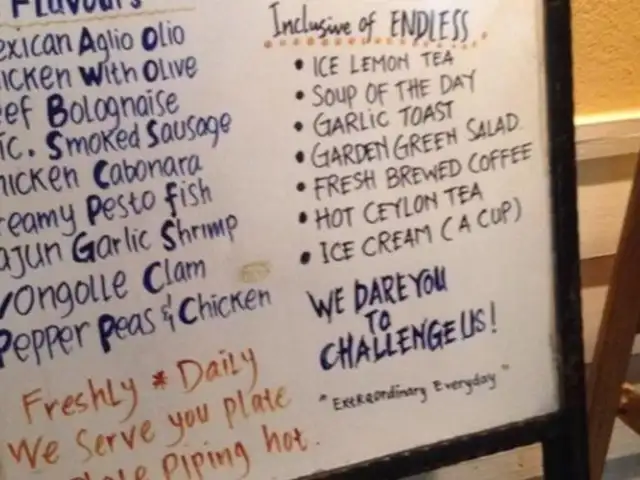 Flavours
exican Aglio Olio
icken With Olive
eef Bolognaise
ic. Smoked Sausage
hicken Cabonara
reamy Pesto fish
ajun Garlic Shrimp
Vongolle Clam
Pepper Peas & Chicken
Freshly * Daily
We Serve you plate
Piping hot.
Inclusive of ENDLESS
• ICE LEMON TEA
• SOUP OF THE DAY
• GARLIC TOAST
• GARDEN GREEN SALAD
• FRESH BREWED COFFEE
• HOT CEYLON TEA
• ICE CREAM (A CUP)
WE DARE YOU
TO
CHALLENGE US!
"Extraordinary Everyday"